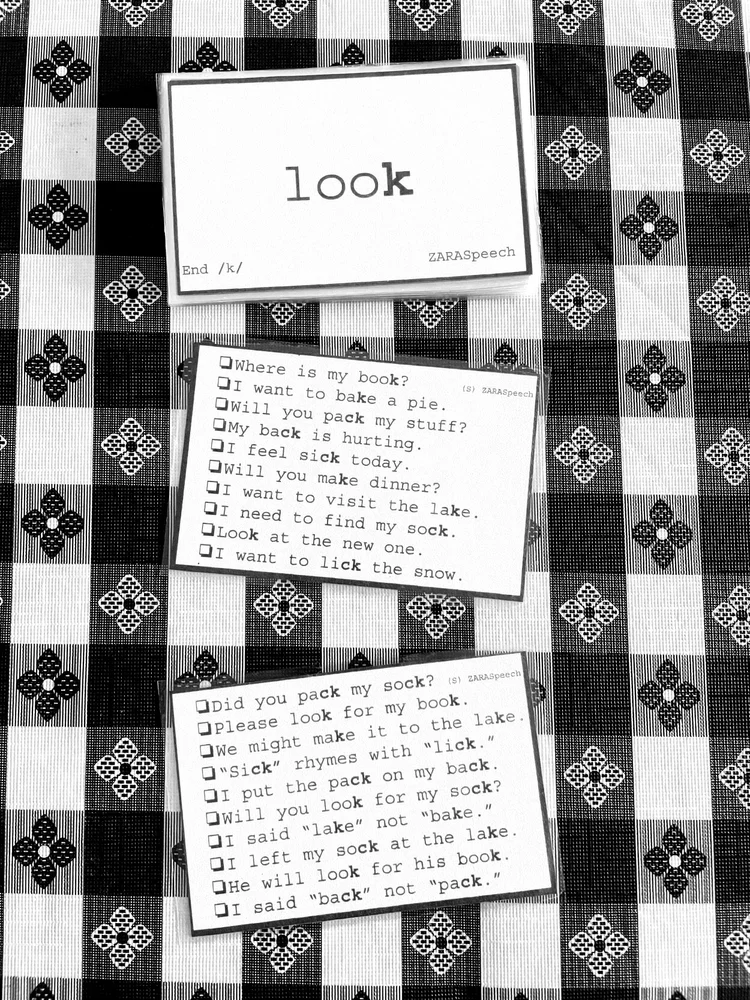 look
End /k/
ZARASpeech
(S) ZARASpeech
❑Where is my book?
❑I want to bake a pie.
❑Will you pack my stuff?
❑My back is hurting.
❑I feel sick today.
❑Will you make dinner?
❑I want to visit the lake.
❑I need to find my sock.
❑Look at the new one.
❑I want to lick the snow.
❑Did you pack my sock? (S) ZARASpeech
❑Please look for my book.
❑We might make it to the lake.
❑“Sick” rhymes with “lick.”
❑I put the pack on my back.
❑Will you look for my sock?
❑I said “lake” not “bake.”
❑I left my sock at the lake.
❑He will look for his book.
❑I said “back” not “pack.”